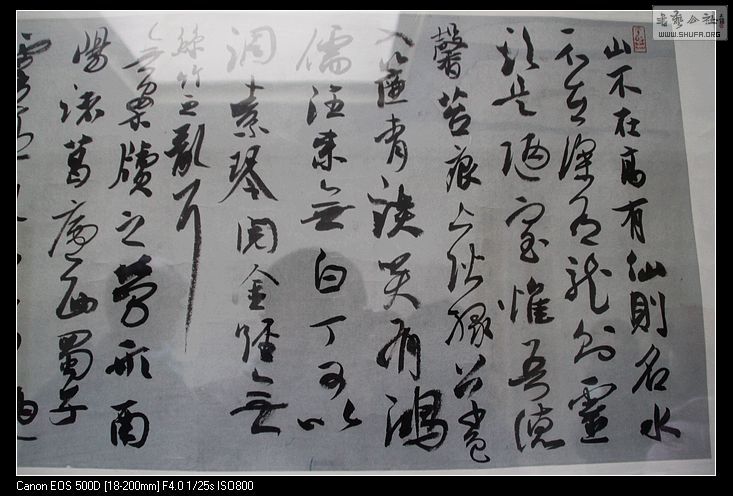 山不在高有仙則名水
不在深有龍則靈
斯是陋室惟吾德
馨苔痕上階緑草色
入簾青談笑有鴻
儒往來無白丁可以
調素琴閱金經無
絲竹之亂耳
無案牘之勞形南
陽諸葛廬西蜀子
WWW.SHUFA.ORG
Canon EOS 500D [18-200mm] F4.0 1/25s ISO800